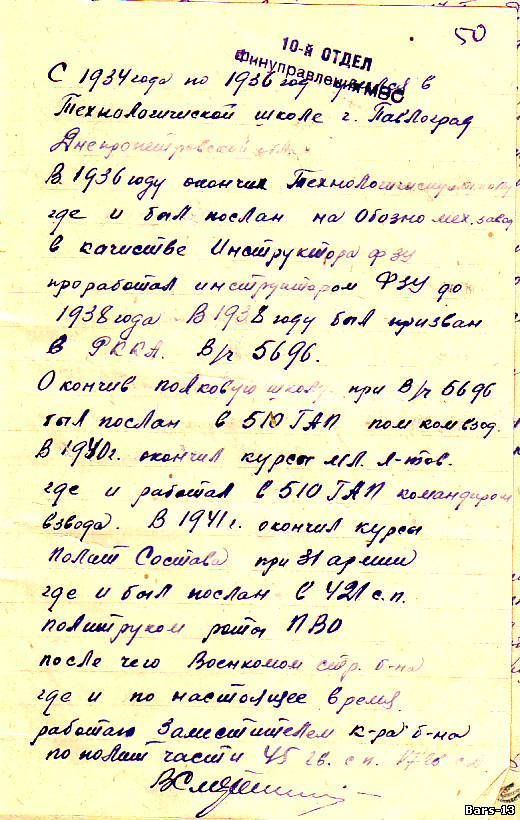 50
10-й ОТДЕЛ
Финуправления УМВС
С 1934 года по 1936 год в
Технологичиской школе г. Павлоград
Днепропетровской обл.
В 1936 году окончил Технологическую школу
где и был послан на Обозно мех. завод
в качистве Инструктора ФЗУ
проработал инструктором ФЗУ до
1938 года В 1938 году был призван
в РККА. В/ч 5696.
Окончив полковую школу при В/ч 5696
был послан в 510 ГАП пом ком взод.
В 1940 г. окончил курсы мл. л-тов.
где и работал в 510 ГАП командиром
взвода. В 1941 г. окончил курсы
Полит Состава при 31 армии
где и был послан в 421 с.п.
политруком роты ПВО
после чего Военкомом стр. б-на
где и по настоящее время
работаю Заместителем к-ра б-на
по полит части 45 гв. с.п.
Bars-13